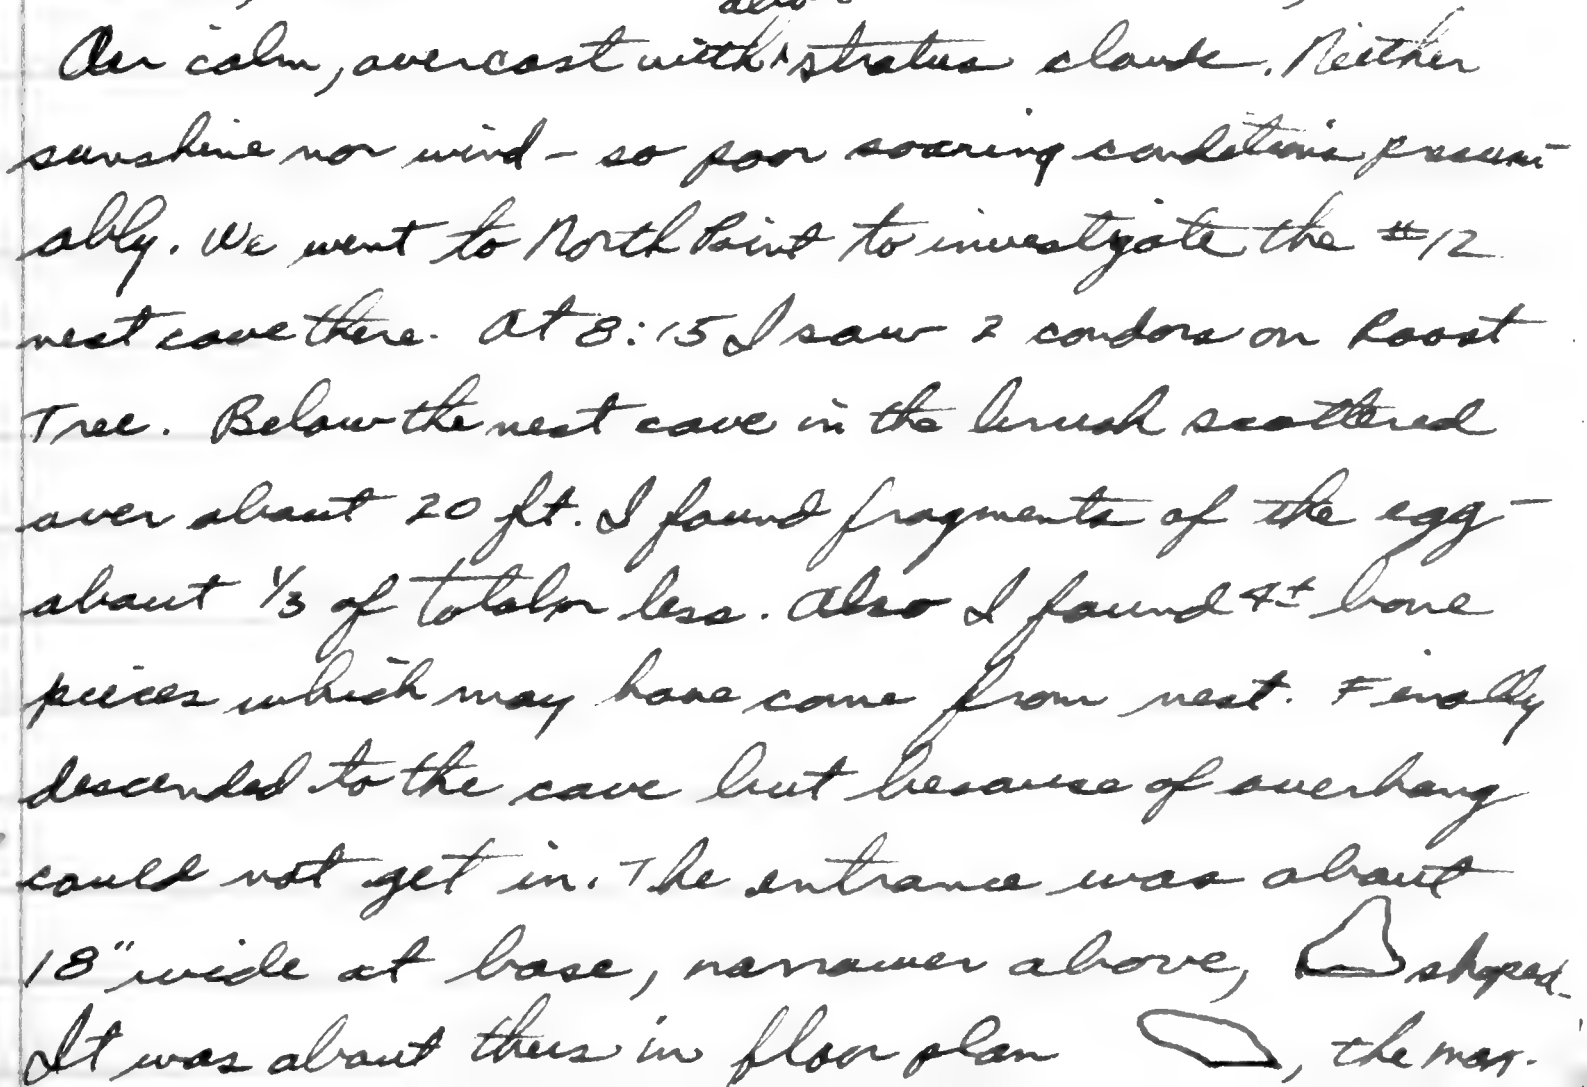 Air calm, overcast with alto stratus clouds. Neither
sunshine nor wind - so poor soaring conditions presum-
ably. We went to North Point to investigate the #12
nest cave there. At 8:15 I saw 2 condors on Roost
Tree. Below the nest cave in the brush scattered
over about 20 ft. I found fragments of the egg -
about 1/3 of total or less. Also I found 4± bone
pieces which may have come from nest. Finally
descended to the cave but because of overhang
could not get in. The entrance was about
18" wide at base, narrower above, shaped.
It was about thus in floor plan , the max.